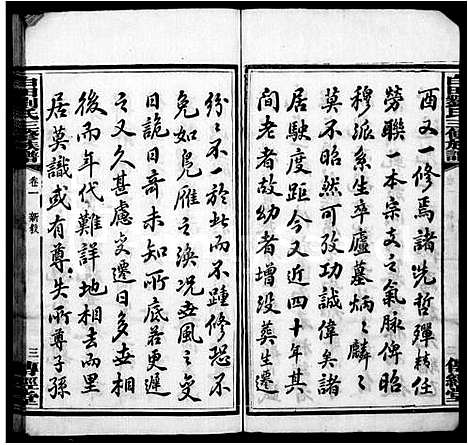 酉又一修焉諸先哲殫精任
勞聯一本宗支之氣脉俾昭
穆派系生卒廬墓炳炳麟麟
莫不昭然可攷功誠偉矣諸
居駛度距今又近四十年其
間老者故幼者增沒葬生遷
紛紛不一於此而不踵修不
免如鳧雁之渙況世風之變
日詭日奇未知所底莊更遲
之又久甚慮變遷日多世亦
後而年代難詳地相去而里
居莫識或有尊失所尊子孫
白田劉氏三修族譜
卷一
新敘
三
傳經堂